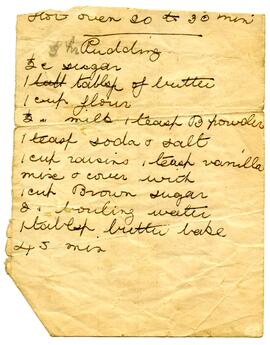 Hot oven 20 to 30 min
Pudding
½ c sugar
1 tablsp of butter
1 cup flour
milk 1 teasp B powder
1 teasp soda & salt
1 cup raisins 1 teasp vanilla
mix & cover with
1 cup Brown sugar
2 " boiling water
1 tablsp butter bake
45 min